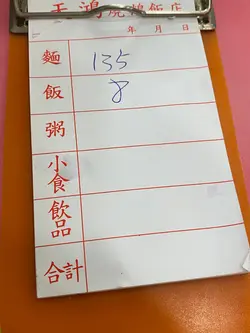 鴻燒臘飯店
年 月 日
麵 135
飯 8
粥
小食
飲品
合計